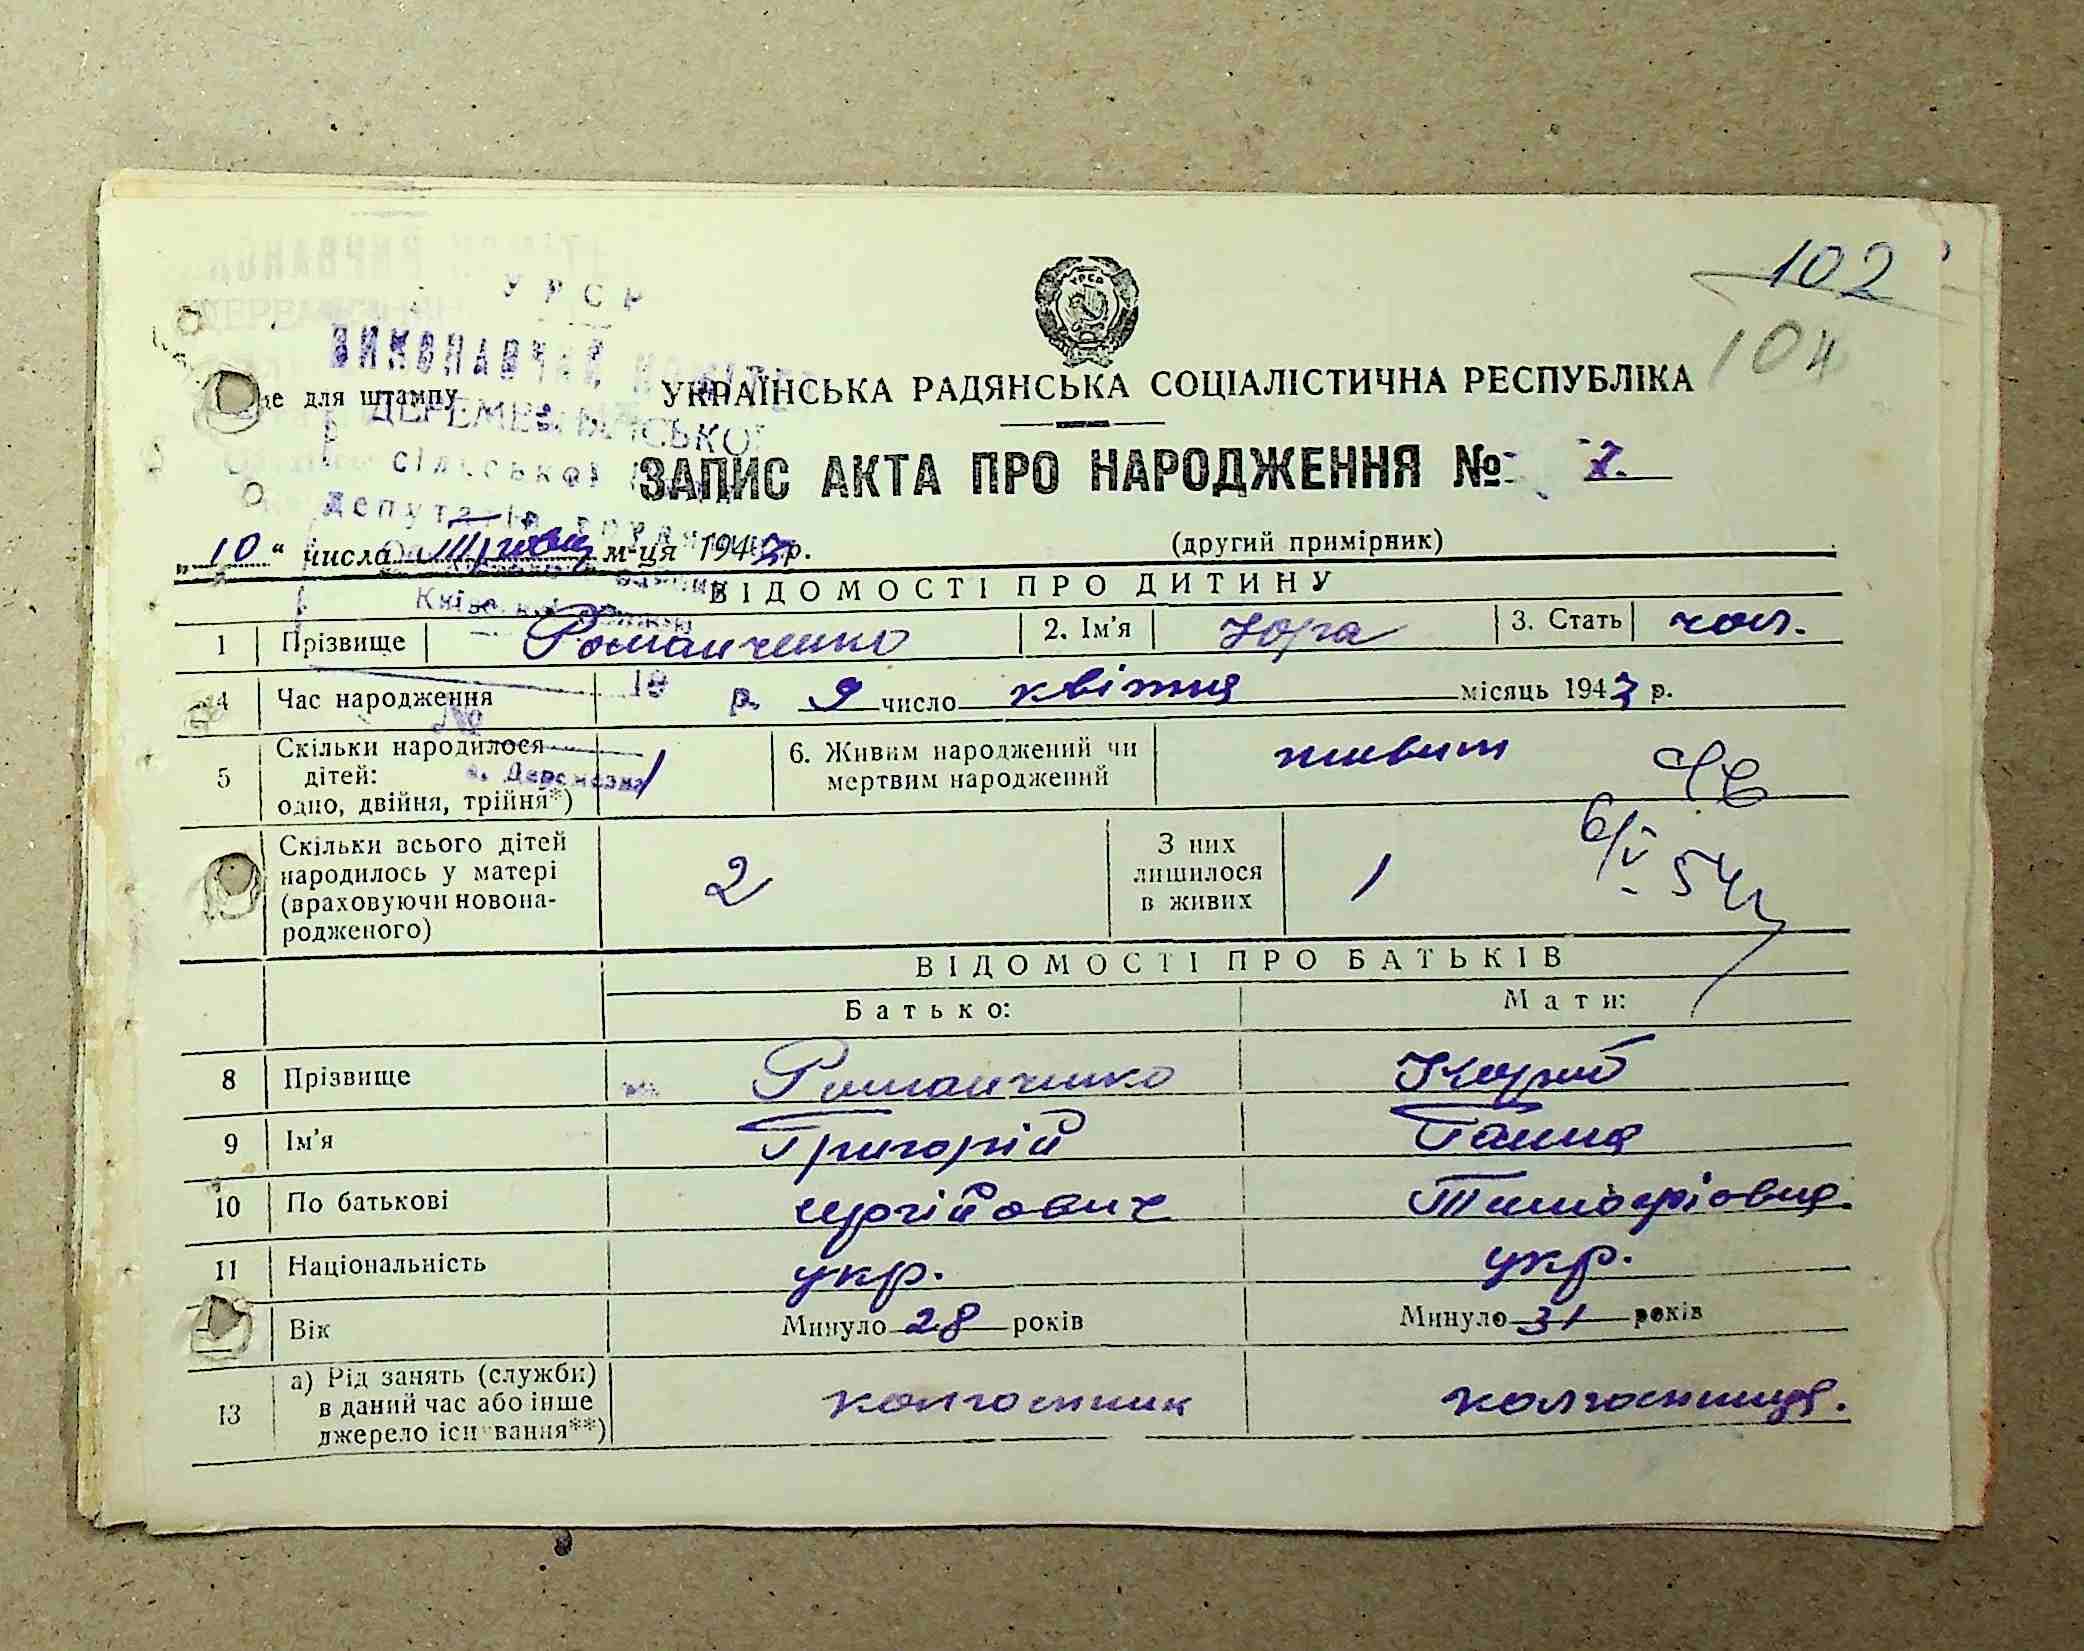 102
104
УРСР
ВИКОНАВЧИЙ КОМІТЕТ
це для штампу
УКРАЇНСЬКА РАДЯНСЬКА СОЦІАЛІСТИЧНА РЕСПУБЛІКА
ДЕРЕМЕЗНЯНСЬКОЇ
сільської
ЗАПИС АКТА ПРО НАРОДЖЕННЯ № 7.
депутатів трудящих
„10“ числа м-ця 1943 р.
(другий примірник)
ВІДОМОСТІ ПРО ДИТИНУ
1 Прізвище Романченко 2. Ім'я Юра 3. Стать чол.
4 Час народження 19 р. 9 число квітня місяць 1943 р.
№
5 Скільки народилося дітей: одно, двійня, трійня*) 1 6. Живим народжений чи мертвим народжений живим
с. Деремезна
6/V-54
Скільки всього дітей народилось у матері (враховуючи новонародженого) 2 З них лишилося в живих 1
ВІДОМОСТІ ПРО БАТЬКІВ
Батько: Мати:
8 Прізвище Романченко
9 Ім'я Григорій Ганна
10 По батькові Сергійович Тимофіовна.
11 Національність укр. укр.
Вік Минуло 28 років Минуло 31 років
13 а) Рід занять (служби) в даний час або інше джерело існування**) колгоспник колгоспниця.